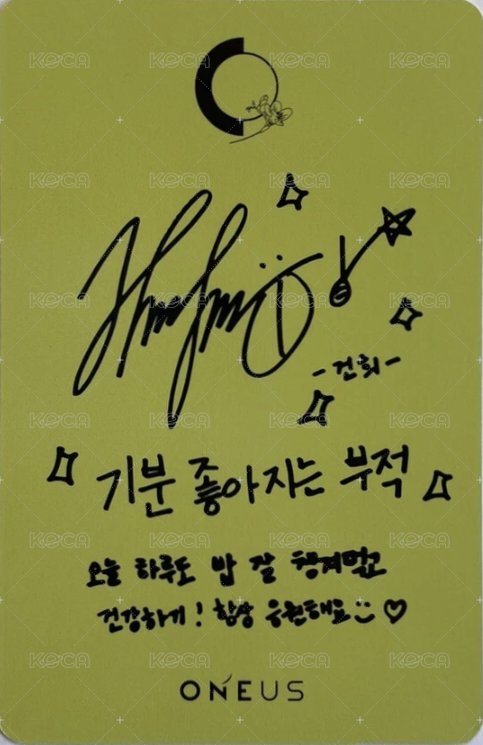 -건희-
기분 좋아지는 부적
오늘 하루도 밥 잘 챙겨먹고
건강하기! 항상 응원해요
ONEUS
KOCA